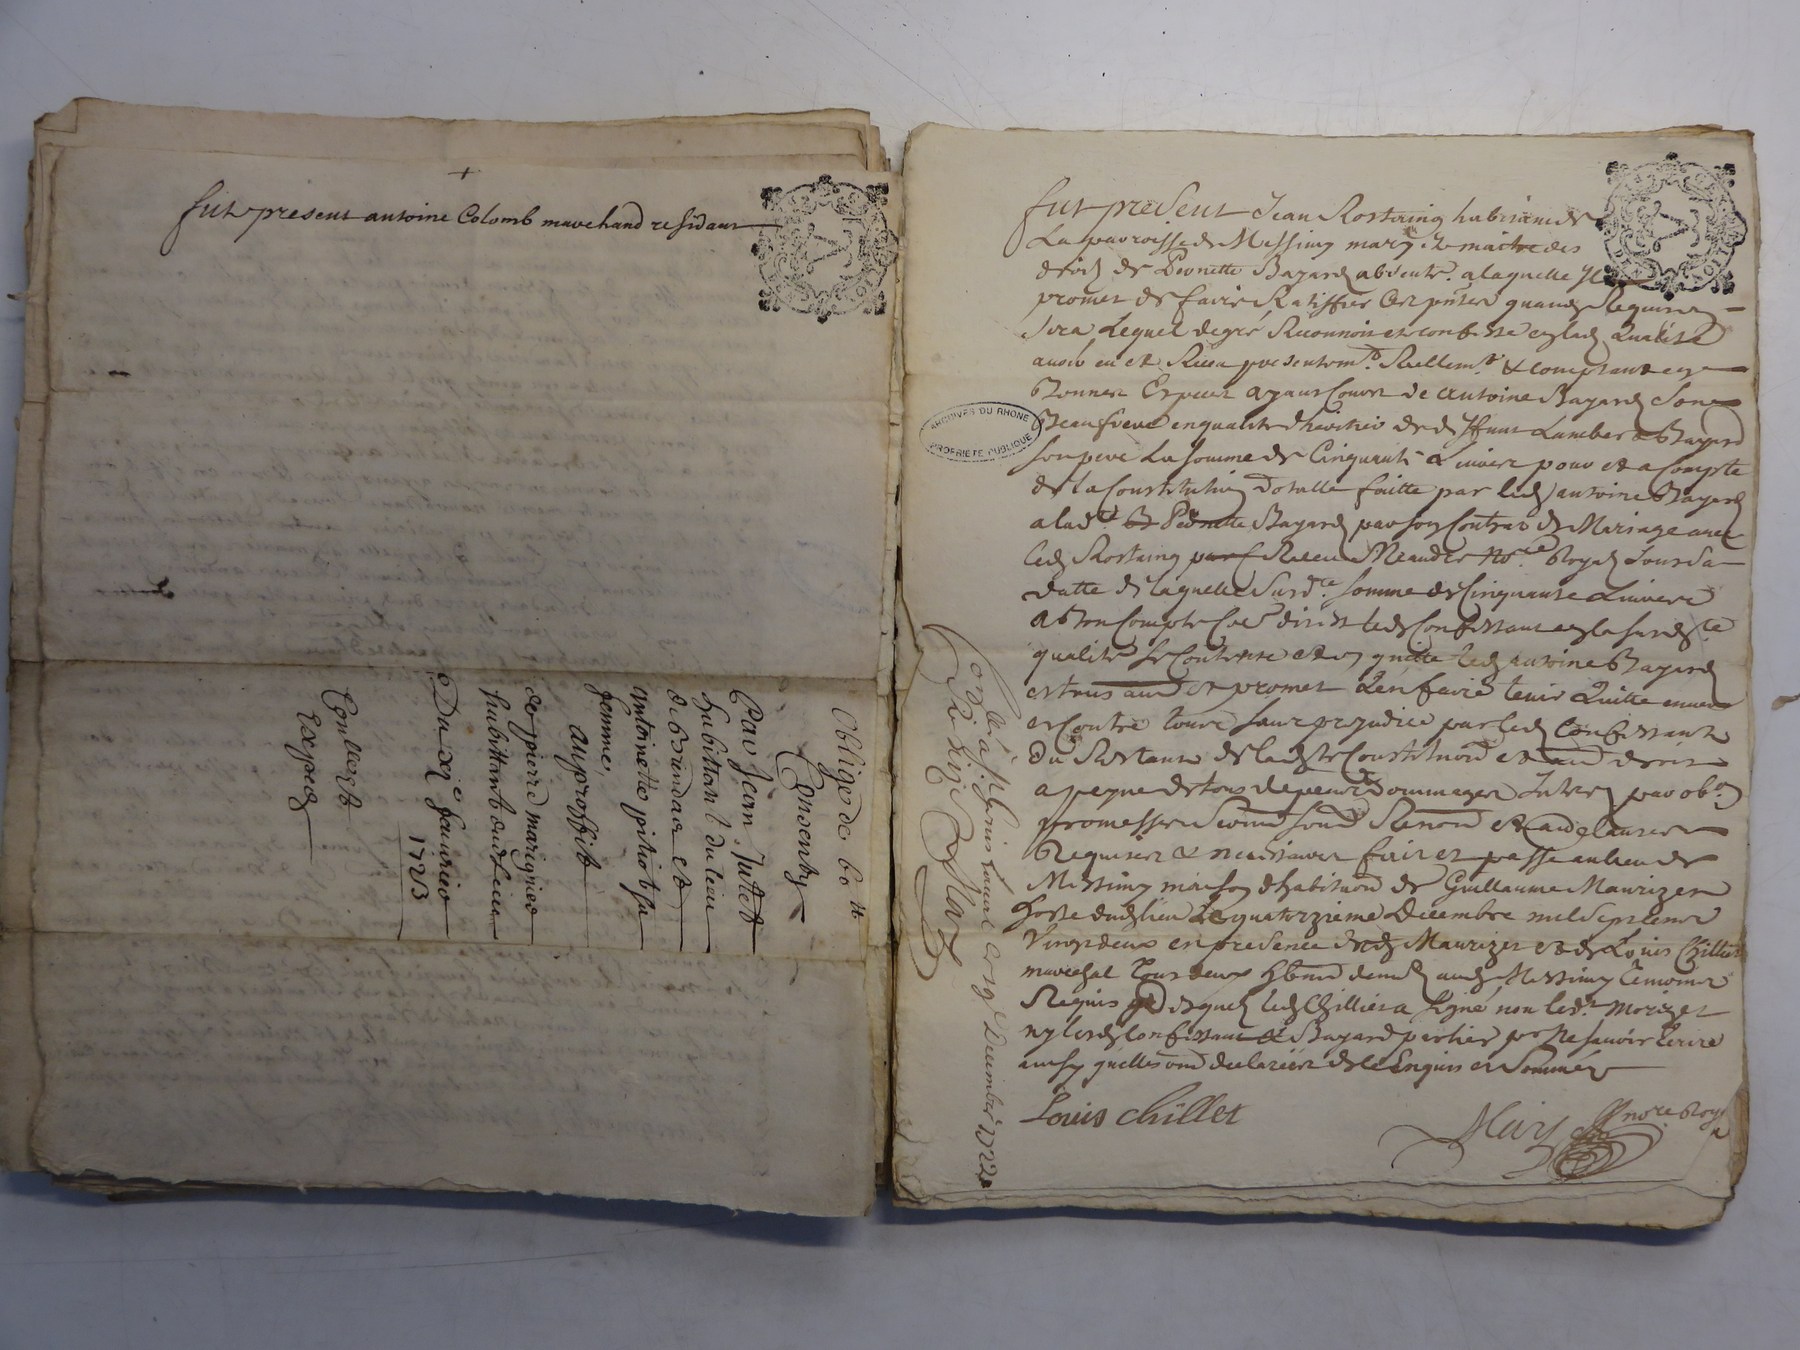 fut present antoine Colomb marchand residant
Oblige de 60 ll
Consentye
Par Jean Juttet
habittant du lieu
de brindas et
antoinette pitiot sa
femme,
au proffit
de pierre marignier
habittant dud lieu
Du xi e feuvrier
1723
Conllerat
Exped
fut present Jean Rostaing habitant de
La parroisse de Messimy mary et maitre des
droits de Pionette Bayard absente. a laquelle Il
promet de faire Ratiffier Ces pntes quand Requis
sera Lequel de gré Reconnoit et confesse esd Qualités
avoir eu et Receu presentemt. Reellemt. & comptant en
Bonnes Especes ayant Cours de antoine Bayard Son
Beaufrere en qualité d'heritier de deffunt Lambert Bayard
son pere La somme de Cinquante Livres pour et a Compte
de la Constitution dotalle faitte par led antoine Bayard
a lad te Pionette Bayard par son Contrat de Mariage avec
led Rostaing Receu Meandre Nore Royal Sous Sa
datte de laquelle Susd te somme de Cinquante Livres
a Bon Compte led Confessant en la susd te
qualité Se Contente et en quitte led antoine Bayard
et tous aud et promet L'en faire tenir Quitte envers
et Contre tous sans prejudice par led Confessant
Du Restant de lad te Constituõn et aud droit
a peyne de tous depens dommages Interets par ob
promesses Soumõns Renõns et aud clauses
Requises & necessaires fait et passé au lieu de
Messimy maison d'habitaõn de Guillaume Maurizet
hoste dud lieu Le quatorzieme Decembre mil sept cent
Vingt deux en presence dud Maurizet et de Louis Chillet
marechal tous deux hbtants demt aud Messimy temoins
Requis desquels led Chillet a signé non led. Morizet
ny lesd Confessant & Bayard parties pr Ne savoir Ecrire
ainsy qu'elles ont declarées de ce Enquis et Sommés
Louis chillet
nore Royal
ARCHIVES DU RHONE
PROPRIETE PUBLIQUE